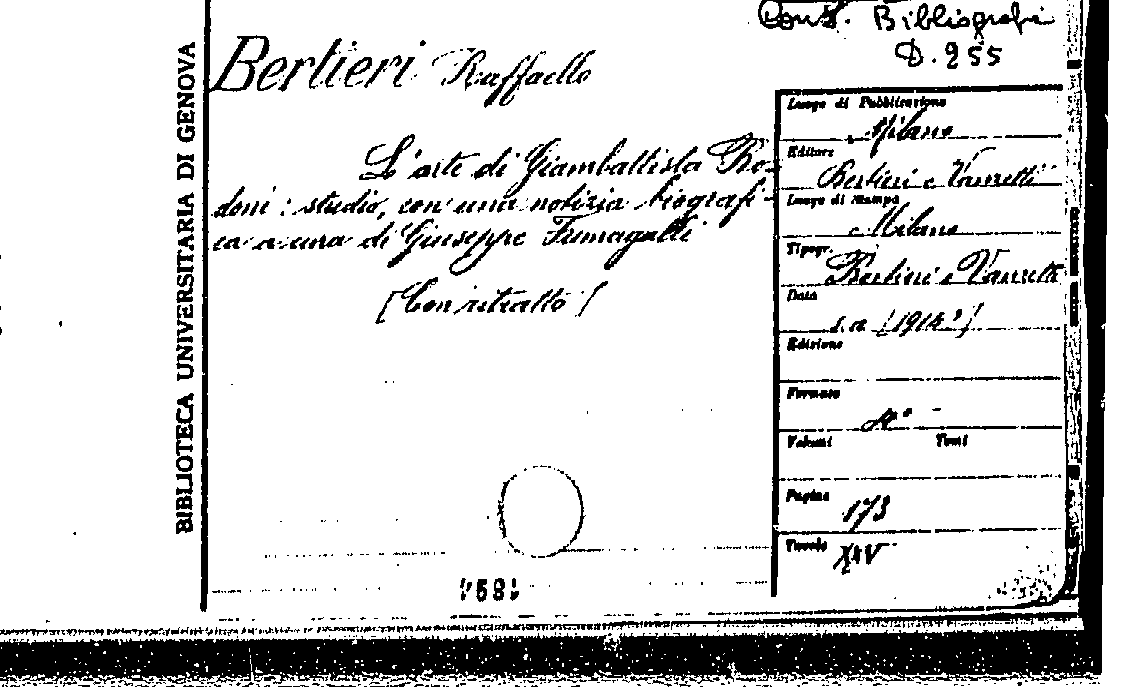 Cons. Bibliografi
D. 255
BIBLIOTECA UNIVERSITARIA DI GENOVA
Bertieri Raffaello
L'arte di Giambattista Bo-
doni : studio, con una notizia biografi-
ca a cura di Giuseppe Fumagalli
[Con ritratto]
Luogo di Pubblicazione
Milano
Editore
Bertieri e Vanzetti
Luogo di Stampa
Milano
Tipogr.
Bertieri e Vanzetti
Data
s.a. [1913?]
Edizione
Formato
4°
Volumi Tomi
Pagine
173
Tavole
XIV